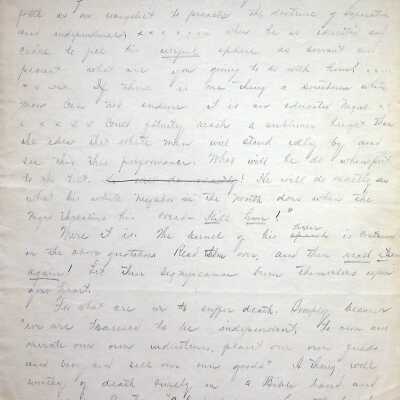 forth as our evangelist to preach the doctrine of separation
and independence? x x x x x x when he is educated and
ceases to fill his menial sphere as servant and
peasant what are you going to do with them? x x...
x x x. If there is one thing a southern white
man can not endure it is an educated Negro. x
x x x x x Could fatuity reach a sublimer height than
the idea that the white man will stand idly by and
see this thin performance. What will he do when put
to the test. He will do exactly as
what his white neighbor in the North does when the
Negro threatens his bread – Kill him! "
Here it is. The kernel of his speech is contained
in the above quotations. Read them over, and then read them
again! Let their significance burn themselves upon
your heart.
For what are we to suffer death. Simply because
"we are trained to be independent, to own and
operate our own industries, plant our own goods
and buy and sell our own goods" A thing well
worthy of death surely in a Bible land and